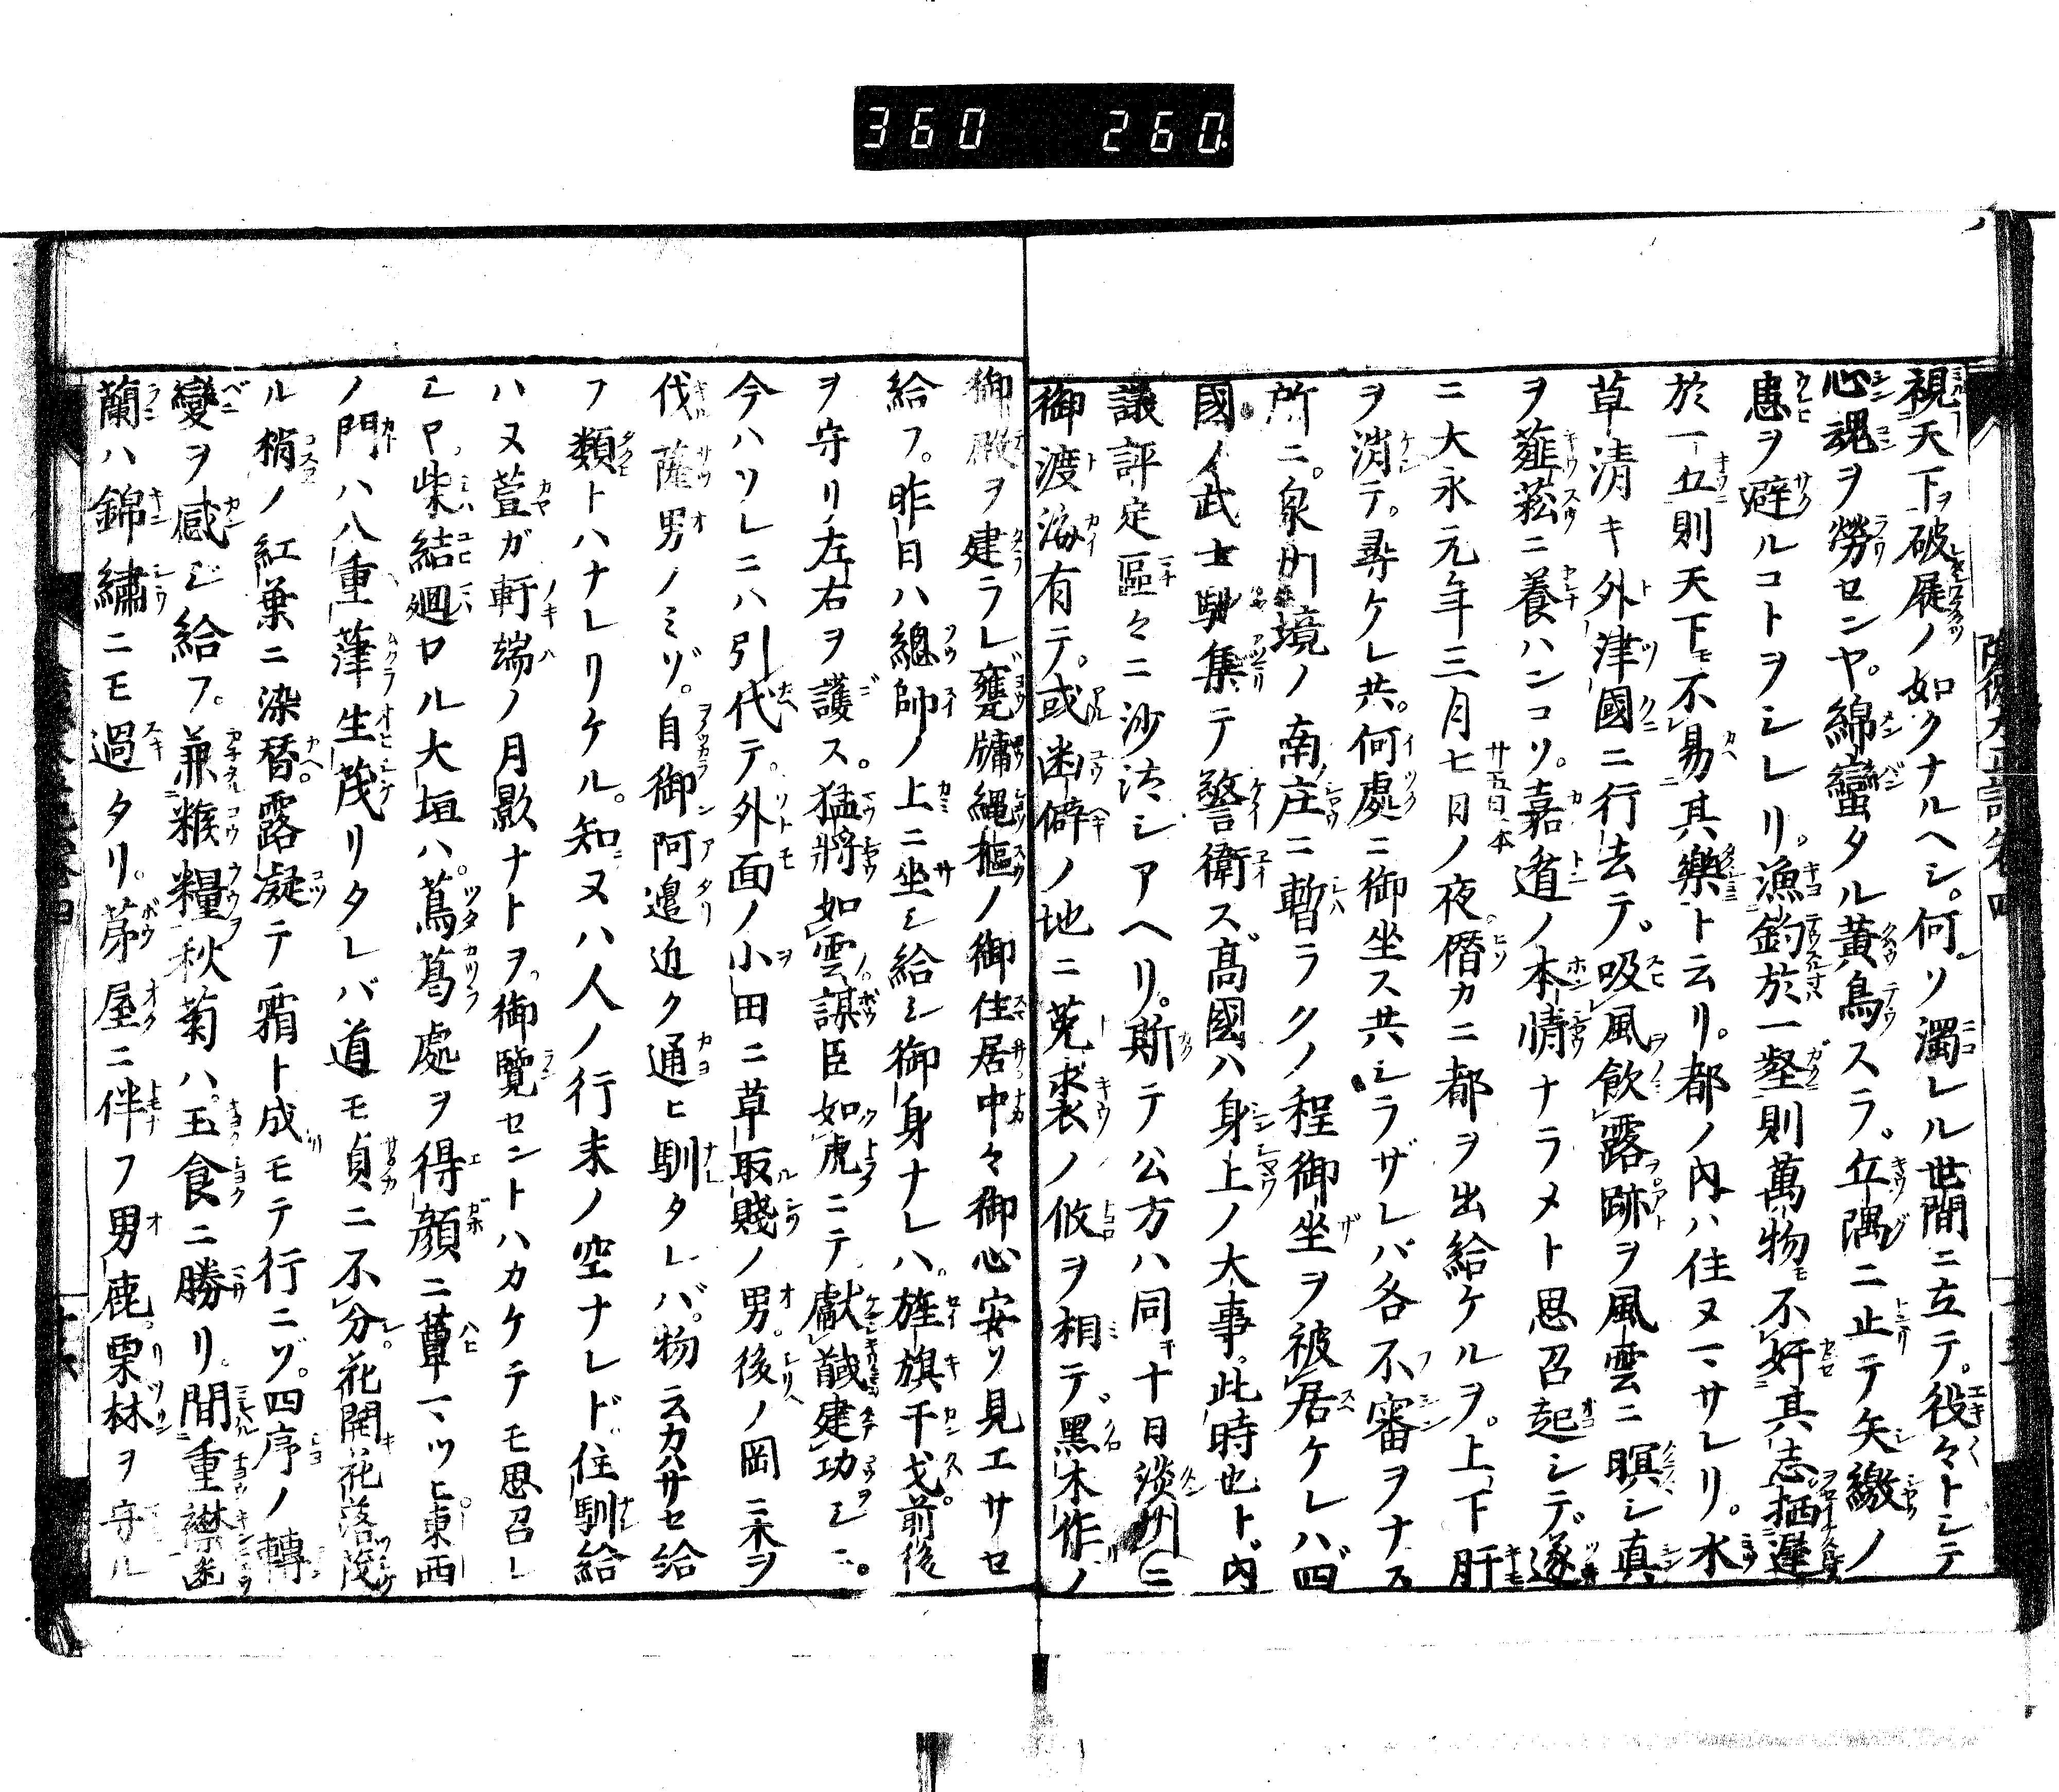 360 260.
視天下ヲ破屣ノ如クナルヘシ。何ソ濁レル世間ニ立テ。役々トシテ
心魂ヲ勞センヤ。綿蠻タル黄鳥スラ。丘隅ニ止テ矢繳ノ
患ヲ避ルコトヲシレリ。漁釣於一壑則萬物モ不奸其志栖遲
於一丘則天下モ不易其樂ト云リ。都ノ内ハ住ヌマサレリ。水
草清キ外津國ニ行去テ。吸風飲露跡ヲ風雲ニ暝シ真
ヲ薤菘ニ養ハンコソ。嘉遁ノ本情ナラメト思召起シテ遂
ニ大永元年三月七日ノ夜潛カニ都ヲ出給ケルヲ。上下肝
廿五日本
ヲ消テ。尋ケレ共。何處ニ御坐ス共シラザレバ各不審ヲナス
所ニ。泉州境ノ南庄ニ暫ラクノ程御坐ヲ被居ケレハ四
國ノ武士馳集テ警衛ス高國ハ身上ノ大事。此時也ト内
議評定區々ニ沙汰シアヘリ。斯テ公方ハ同キ十日淡州ニ
御渡海有テ。或幽僻ノ地ニ莵裘ノ攸ヲ相テ黒木作ノ
御殿ヲ建ラレ甕牖縄樞ノ御住居中々御心安ソ見エサセ
給フ。昨日ハ總帥ノ上ニ坐シ給シ御身ナレハ。旌旗干戈前後
ヲ守リ左右ヲ護ス。猛將如雲謀臣如虎ニテ獻馘建功シニ。
今ハソレニハ引代テ。外面ノ小田ニ草取賤ノ男。後ノ岡ニ木ヲ
伐薩男ノミゾ。自御阿邉近ク通ヒ馴タレバ。物云カハサセ給
フ類トハナレリケル。知ヌハ人ノ行末ノ空ナレド住馴給
ハヌ萱ガ軒端ノ月影ナトヲ。御覽セントハカケテモ思召シ
シヤ。柴結廻ロル大垣ハ。蔦葛處ヲ得顔ニ蔓マツヒ東西
ノ門ハ八重葎生茂リタレバ道モ貞ニ不分花開花落茂
ル梢ノ紅葉ニ染替。露凝テ霜ト成モテ行ニゾ。四序ノ轉
變ヲ感ジ給フ。兼糇糧秋菊ハ。玉食ニ勝リ。間重襟幽
蘭ハ錦繍ニモ過タリ。茅屋ニ伴フ男鹿栗林ヲ守ル